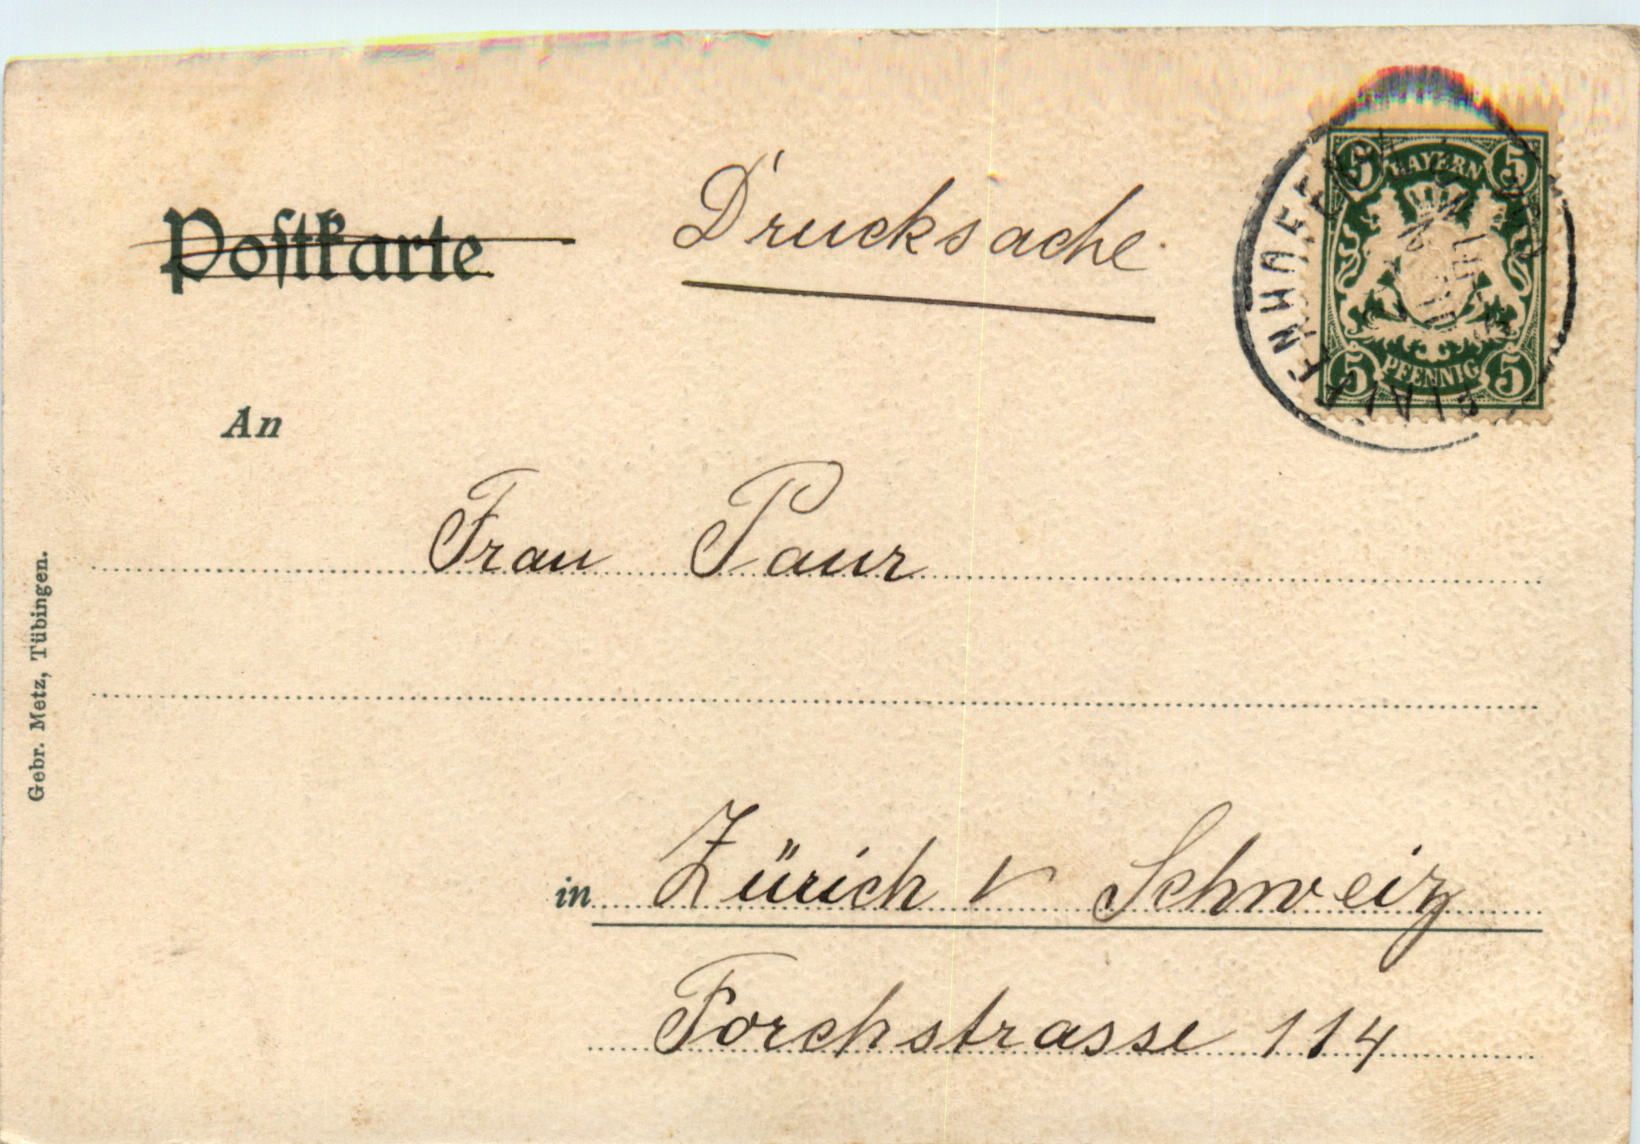 Postkarte
Drucksache
BAYERN
5 5
5 PFENNIG 5
An
Frau Paur
in Zürich Schweiz
Forchstrasse 114
Gebr. Metz, Tübingen.